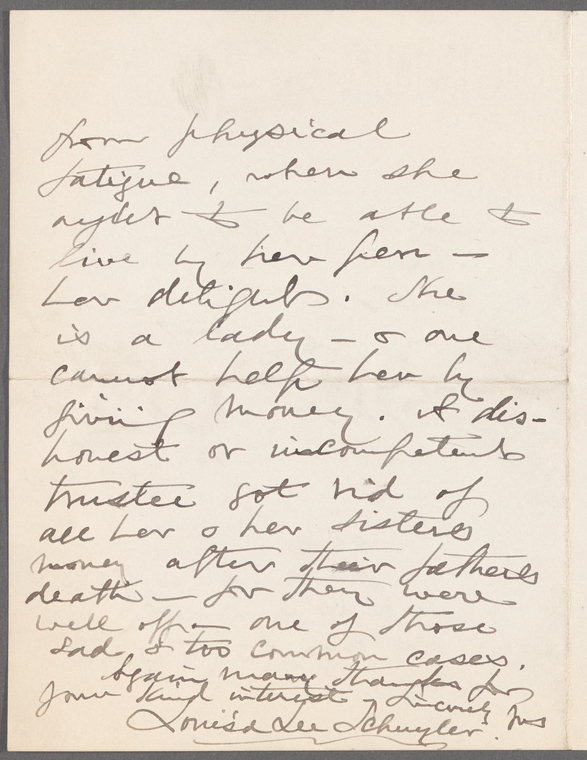 from physical
fatigue, when she
ought to be able to
live by her pen —
her delights. She
is a lady — & one
cannot help her by
giving money. A dis-
honest or incompetent
trustee got rid of
all her & her sisters
money after their fathers
death — for they were
well off — one of those
sad & too common cases.
Again many thanks for
your kind interest, Sincerely yrs
Louisa Lee Schuyler.